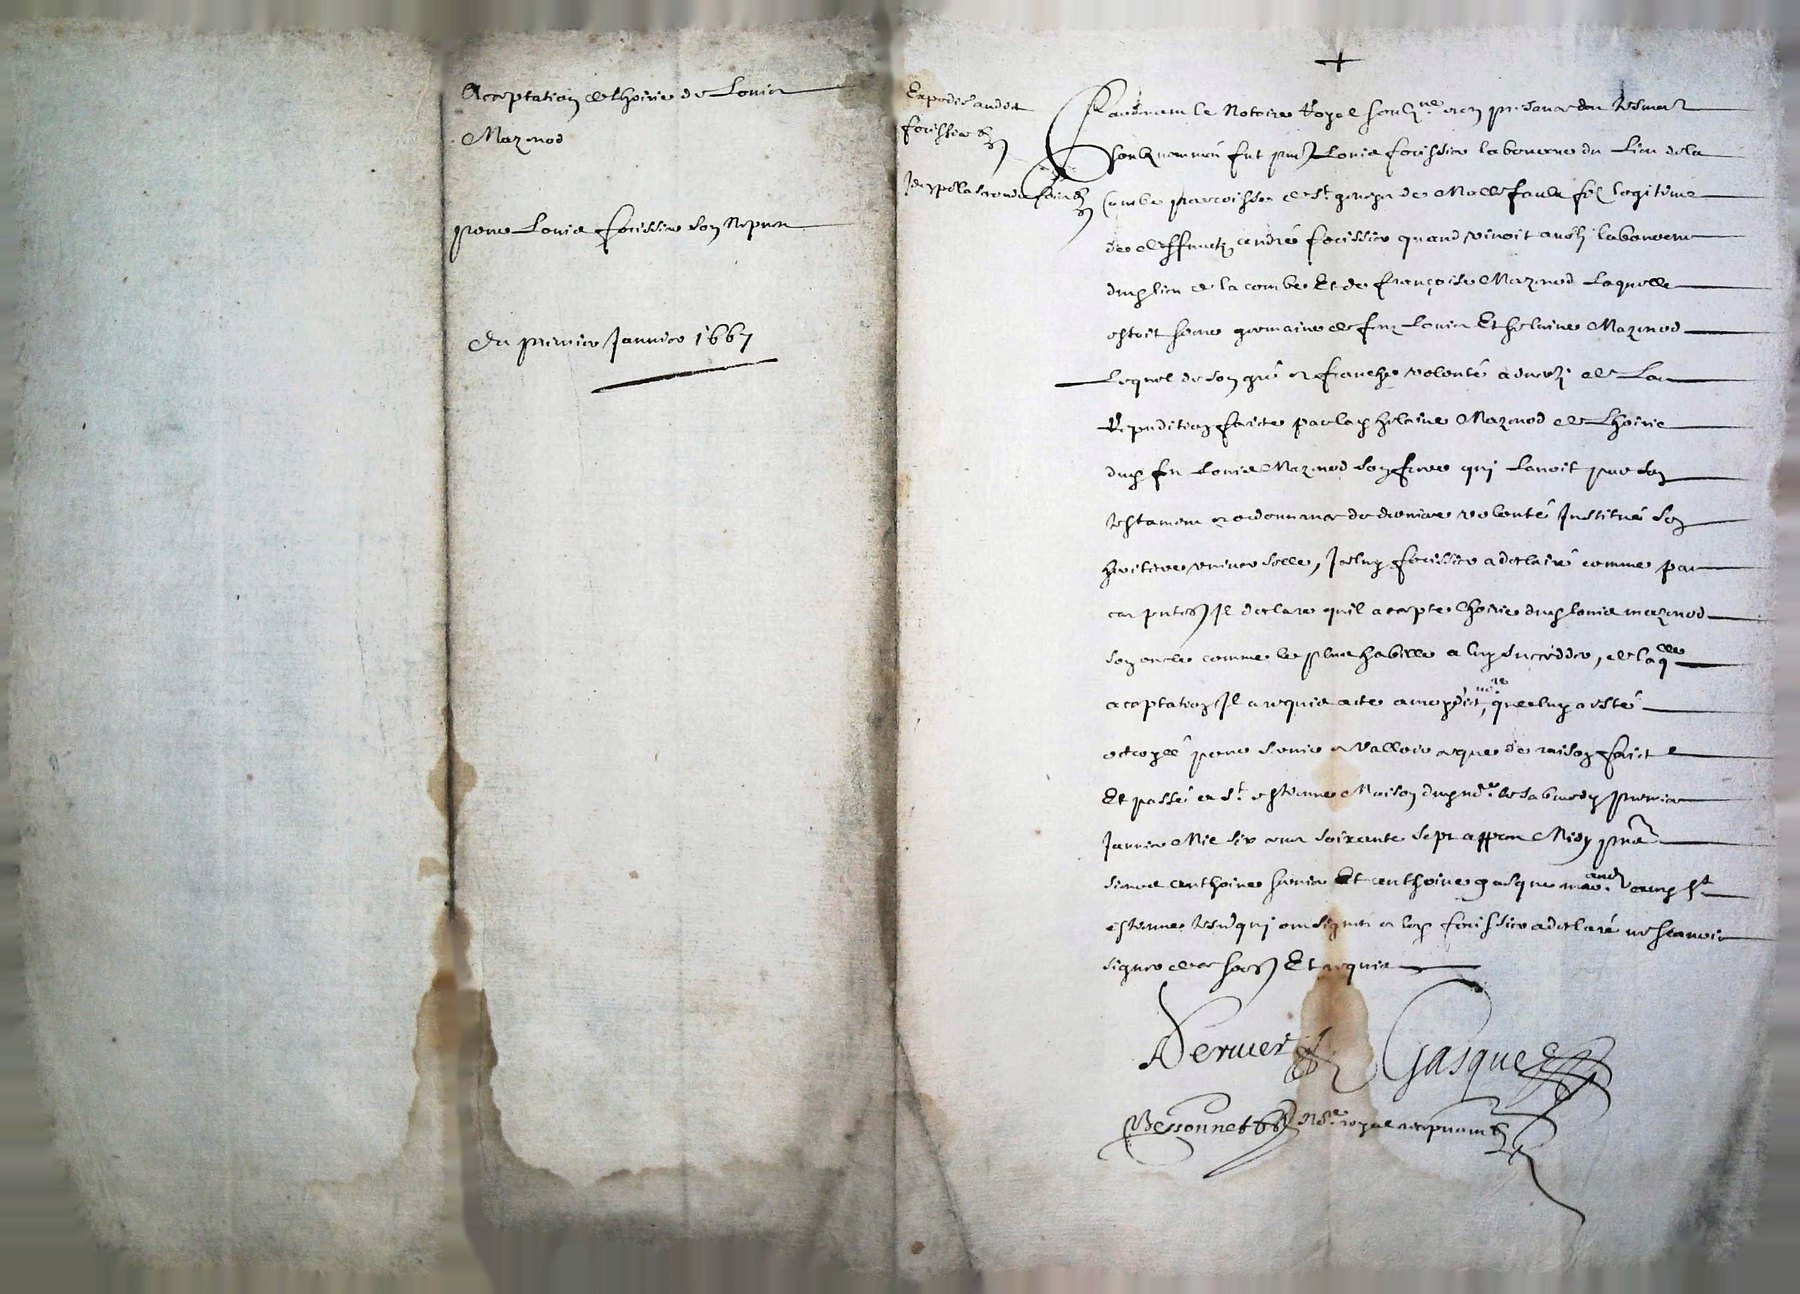 Acceptation de Lhoirie de Louis
Mazenod
pour Louis forissier son Nepveu
du premier Janvier 1667
Expedié audit
forissier
la seconde fois
+
Pardevant le Notoire Royal soubz.ne et en presance des tesmoings
soubznommés fut pnt Louis forissier laboureur du Lieu de la
Combe parroisse de St geneys de Mallefault filz legitime
de deffunctz andré forissier quand vivoit aussy laboureur
dud lieu de la combe Et de françoise Mazenod Laquelle
estoit seur germaine de feuz Louis Et helaine Mazenod
Lequel de son gré et franche volonté adverty de La
Repudition faicte par lad helaine Mazenod de Lhoirie
dud feu Louis Mazenod son frere qui Lavoit par son
testament et ordonnance de derniere volonté Institué son
heritiere universelle, Icelluy forissier a desclairé comme par
ces pntes Il desclare quil accepte Lhoirie dud Louis mazenod
son oncle comme le plus habille a luy succedder, de laqlle
acceptation Il a requis acte a moyd. not.re que luy ay esté
octroyé pour servir et valloir ce que de raison faict
Et passé a St estienne Maison dud no.re le sabmedy premier
Janvier Mil six cens soixante sept appres Midy pns
sieurs anthoine servier Et anthoine gasque march. dud St
estienne tesm. qui ont signé et led forissier a desclaré ne scavoir
signer de ce fere Et requis
Servier Gasque
Bessonnet no.re royal recepvant